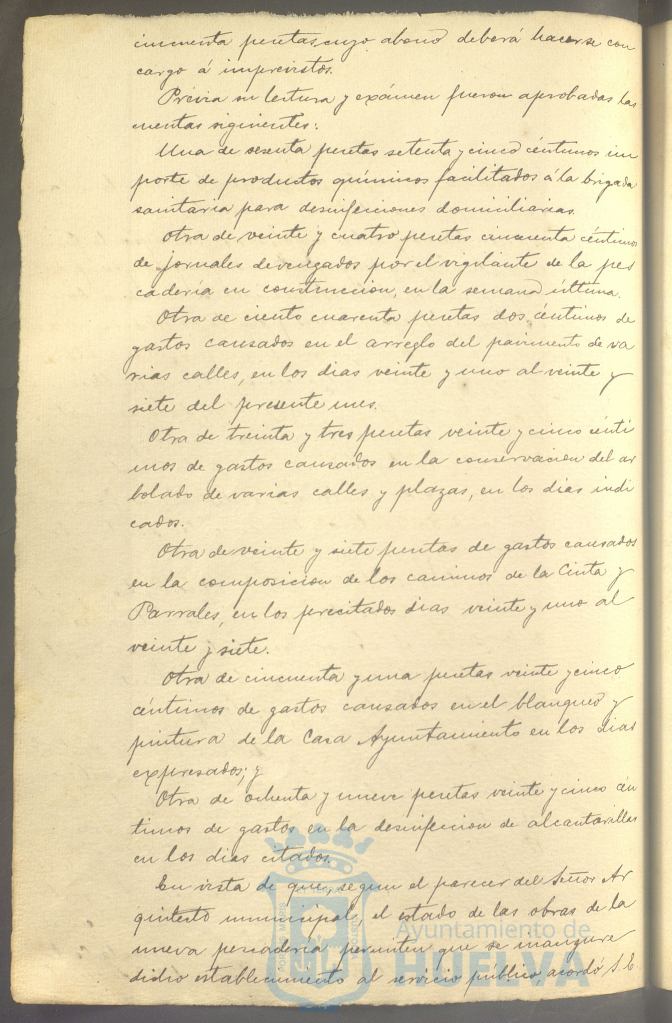 cincuenta pesetas, cuyo abono deberá hacerse con
cargo á imprevistos.
Prévia su lectura y exámen fueron aprobadas las
cuentas siguientes:
Una de sesenta pesetas setenta y cinco céntimos im
porte de productos químicos facilitados á la brigada
sanitaria para desinfecciones domiciliarias.
Otra de veinte y cuatro pesetas cincuenta céntimos
de jornales devengados por el vigilante de la pes
cadería en construccion, en la semana última.
Otra de ciento cuarenta pesetas dos céntimos de
gastos causados en el arreglo del pavimento de va
rias calles, en los dias veinte y uno al veinte y
siete del presente mes.
Otra de treinta y tres pesetas veinte y cinco cénti
mos de gastos causados en la conservacion del ar
bolado de varias calles y plazas, en los dias indi
cados.
Otra de veinte y siete pesetas de gastos causados
en la composicion de los caminos de la Cinta y
Parrales, en los precitados dias veinte y uno al
veinte y siete.
Otra de cincuenta y una pesetas veinte y cinco
céntimos de gastos causados en el blanqueo y
pintura de la Casa Ayuntamiento en los dias
expresados; y
Otra de ochenta y nueve pesetas veinte y cinco cén
timos de gastos en la desinfeccion de alcantarillas
en los dias citados.
En vista de que, segun el parecer del Señor Ar
quitecto municipal, el estado de las obras de la
nueva pescadería permiten que se inaugure
dicho establecimiento al servicio público acordó S. E.
Ayuntamiento de
HUELVA